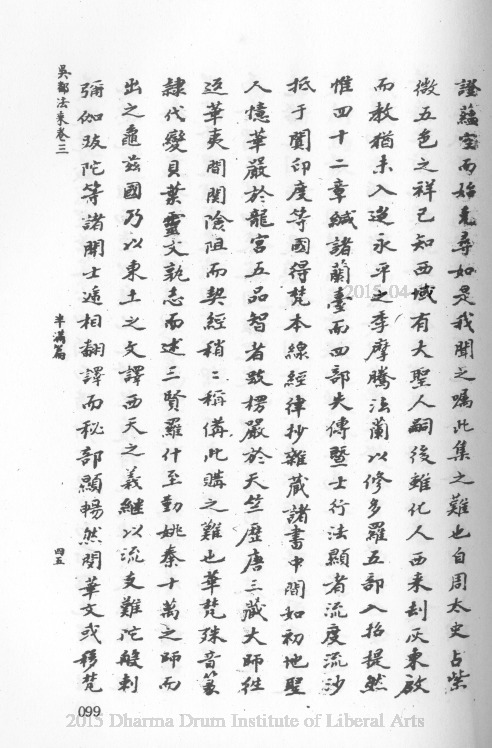 證蘊空而始克尋如是我聞之囑此集之難也自周太史占紫
微五色之祥已知西域有大聖人嗣後雖化人西來刦灰東啟
而教猶未入逮永平之季摩騰法蘭以修多羅五部入招提然
惟四十二章緘諸蘭臺而四部失傳暨士行法顯者流度流沙
抵于闐印度等國得梵本線經律抄雜藏諸書中間如初地聖
人憶華嚴於龍宮五品智者致楞嚴於天竺歷唐三藏大師往
返華夷間關險阻而契經稍稍稱備此購之難也華梵殊音篆
隸代變貝葉靈文執志而述三賢羅什至勤姚秦十萬之師而
出之龜茲國乃以東土之文譯西天之義繼以流支難陀般剌
彌伽跋陀等諸開士遞相翻譯而秘部顯暢然閱華文或移梵
吳都法乘卷三
半滿篇
四五
099
2015-04
2015 Dharma Drum Institute of Liberal Arts